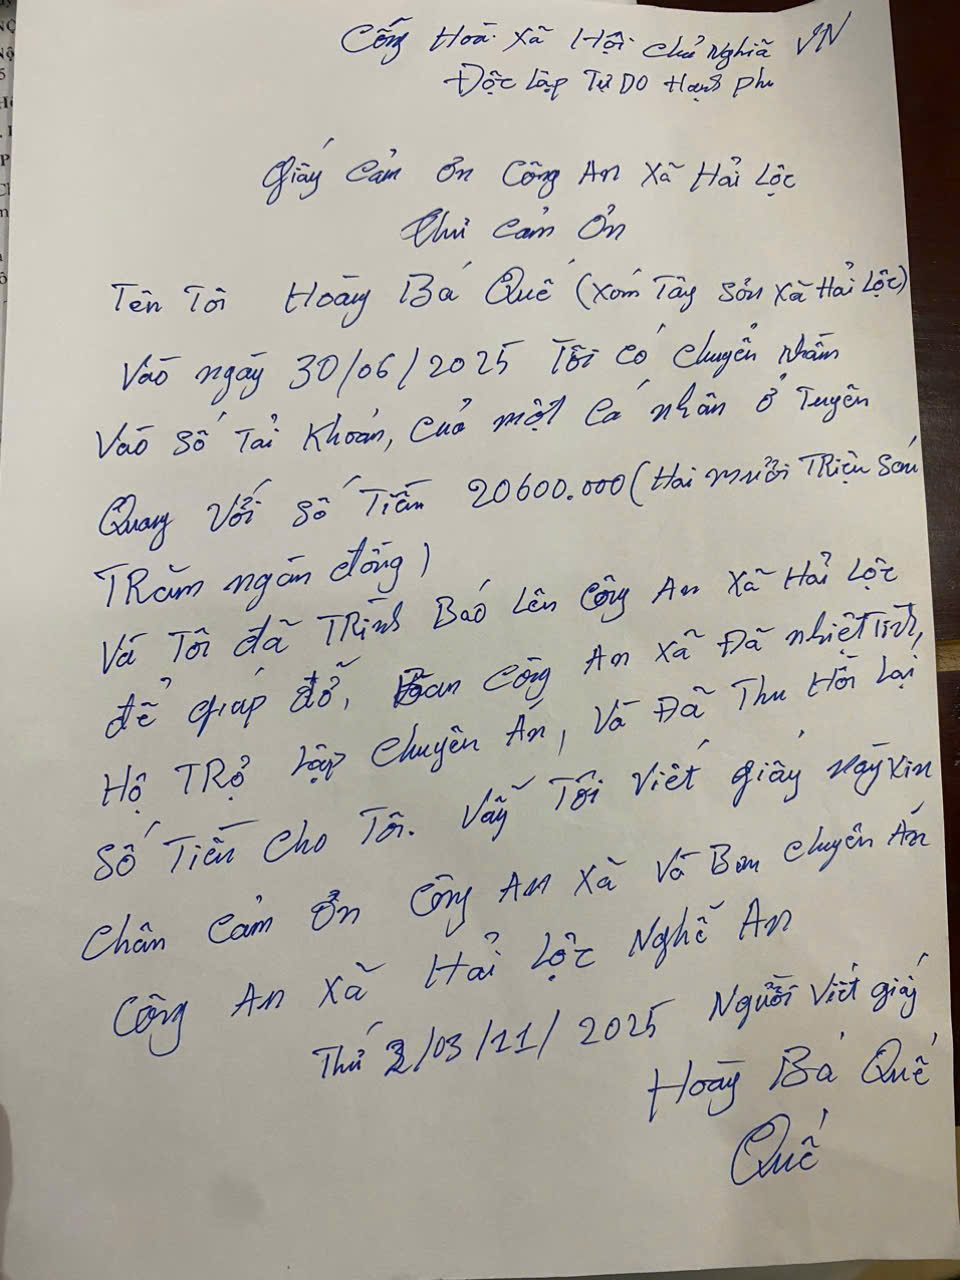 Cống Hoà Xã Hội Chủ Nghĩã VN
Độc Lập Tự DO Hạnh Phu
Giấy Cảm Ơn Công An Xã Hải Lộc
Thư Cảm Ơn
Tên Tôi Hoàng Bá Quế (Xóm Tây Sơn Xã Hải Lộc)
Vào ngày 30/06/2025 Tôi có chuyển nhầm
Vào Số Tải Khoản, Của một Cá nhân ở Tuyên
Quang Với Số Tiền 20600.000 (Hai mười Triệu Sáu
TRăm ngàn đồng)
Và Tôi đã TRình Báo Lên Công An Xã Hải Lộc
để giúp đỡ, Ban Công An Xã Đã nhiệt Tình,
Hộ TRợ Lập Chuyên Án, Và Đã Thu Hồi Lại
Số Tiền Cho Tôi. Vậy Tôi Viết giấy này Xin
Chân Cảm Ơn Công An Xã Và Ban Chuyên Án
Công An Xã Hải Lộc Nghệ An
Thứ 2/03/11/2025 Người Viết giấy
Hoàng Bá Quế
Quế